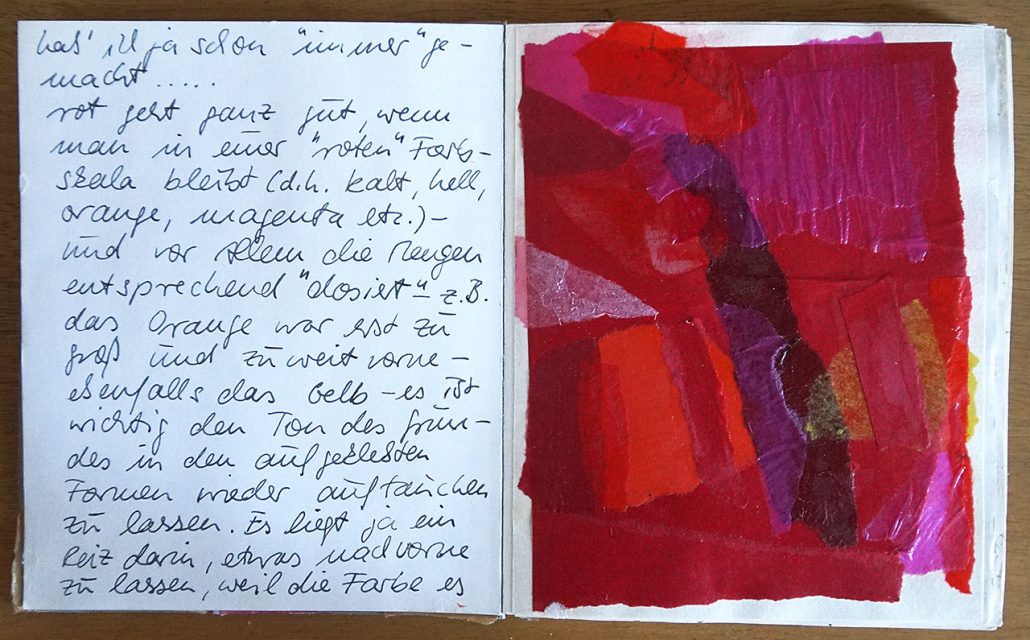 hab' ich ja schon "immer" ge-
macht.....
rot geht ganz gut, wenn
man in einer "roten" Farb-
skala bleibt (d.h. kalt, hell,
orange, magenta etc.) -
und vor allem die Mengen
entsprechend "dosiert" - z.B.
das Orange war erst zu
groß und zu weit vorne -
ebenfalls das Gelb - es ist
wichtig den Ton des Grun-
des in den aufgeklebten
Formen wieder auftauchen
zu lassen. Es liegt ja ein
Reiz darin, etwas nach vorne
zu lassen, weil die Farbe es